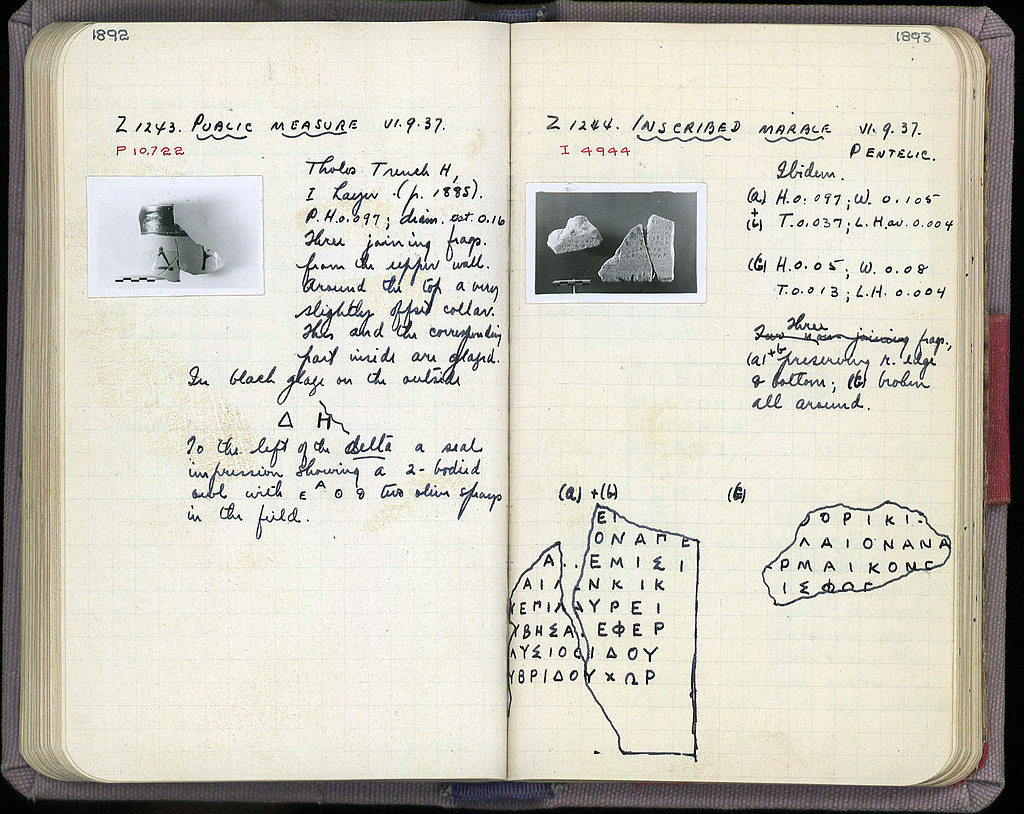 1892
Z 1243. PUBLIC MEASURE VI.9.37.
P 10,722
Tholos Trench H,
I Layer (p. 1885).
P.H. 0.097; diam. est. 0.16
Three joining frags.
from the upper wall.
Around the top a very
slightly offset collar.
This and the corresponding
part inside are glazed.
In black glaze on the outside
Δ Η
To the left of the delta a seal
impression showing a 2-bodied
owl with Ε Α Θ & two olive sprays
in the field.
1893
Z 1244. INSCRIBED MARBLE VI.9.37.
I 4944
PENTELIC.
Ibidem.
(a) H. 0.097; W. 0.105
+
(b) T. 0.037; L.H. av. 0.004
(c) H. 0.05; W. 0.08
T. 0.013; L.H. 0.004
Three
joining frags.,
(a)+b preserving r. edge
& bottom; (c) broken
all around.
(a) + (b)
ΕΙ
ΟΝΑΠΕ
Α . . ΕΜΙΣΙ
ΑΙΛ ΝΚΙΚ
ΥΕΠΙΛ ΥΡΕΙ
ΥΒΗΣΑ . ΕΦΕΡ
ΛΥΣΙΟΣΙΔΟΥ
ΥΒΡΙΔΟΥΧΩΡ
(c)
ΟΡΙΚΙ
ΛΑΙΟΝΑΝΑ
ΡΜΑΙΚΟΝΓ
ΙΣΦΩΓ